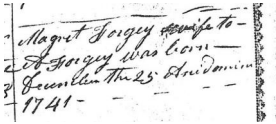 Magret Forgey wife to
A Forgey was born
December The 25 Anedominie
1741